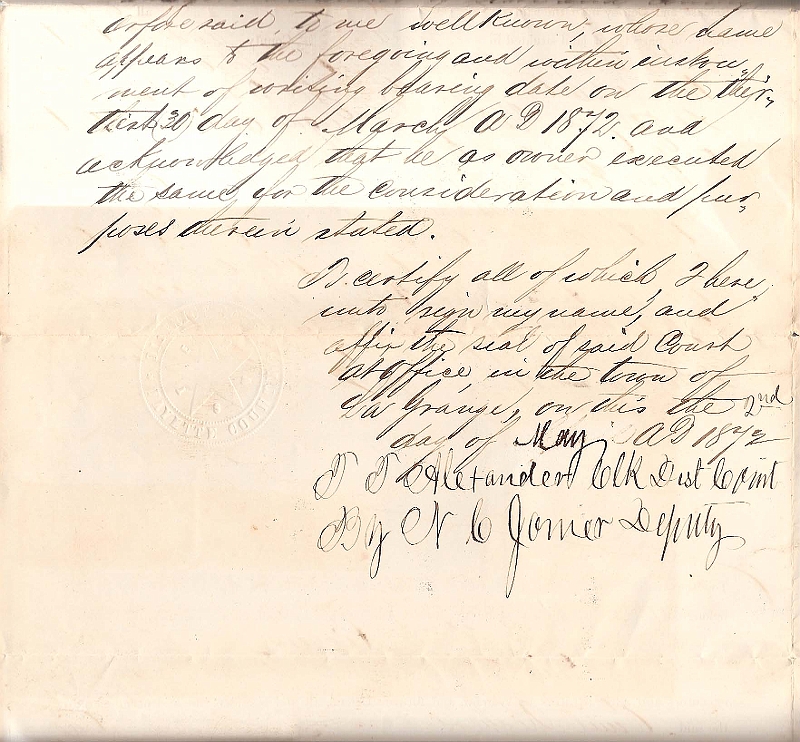 aforesaid, to me well known, whose name
appears to the foregoing and within instru
ment of writing bearing date on the thir,,
tiest 30 day of March A D 1872. and
acknowledged that he as owner executed
the same, for the consideration and pur,,
poses therein stated.
To certify all of which, I here
unto sign my name, and
affix the seal of said Court
at office, in the town of
La Grange, on this the 2nd
day of May A D 1872
Alexander Clk Dist Court
By N C Joiner Deputy
FAYETTE COUNTY